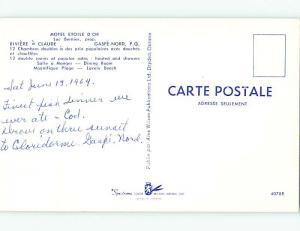 MOTEL ETOILE D'OR
Luc Bernier, prop.
RIVIÈRE à CLAUDE GASPÉ-NORD, P.Q.
12 Chambres doubles à des prix populaires avec douches
et chauffées
12 double rooms at popular rates - heated and showers
Salle à Manger — Dining Room
Magnifique Plage — Lovely Beach
Sat June 13, 1964.
Finest fish dinner we
ever ate - Cod.
Drove on thru sunset
to Cloridorme. Gaspé, Nord.
Publié par
CARTE POSTALE
ADRESSE SEULEMENT
4070R